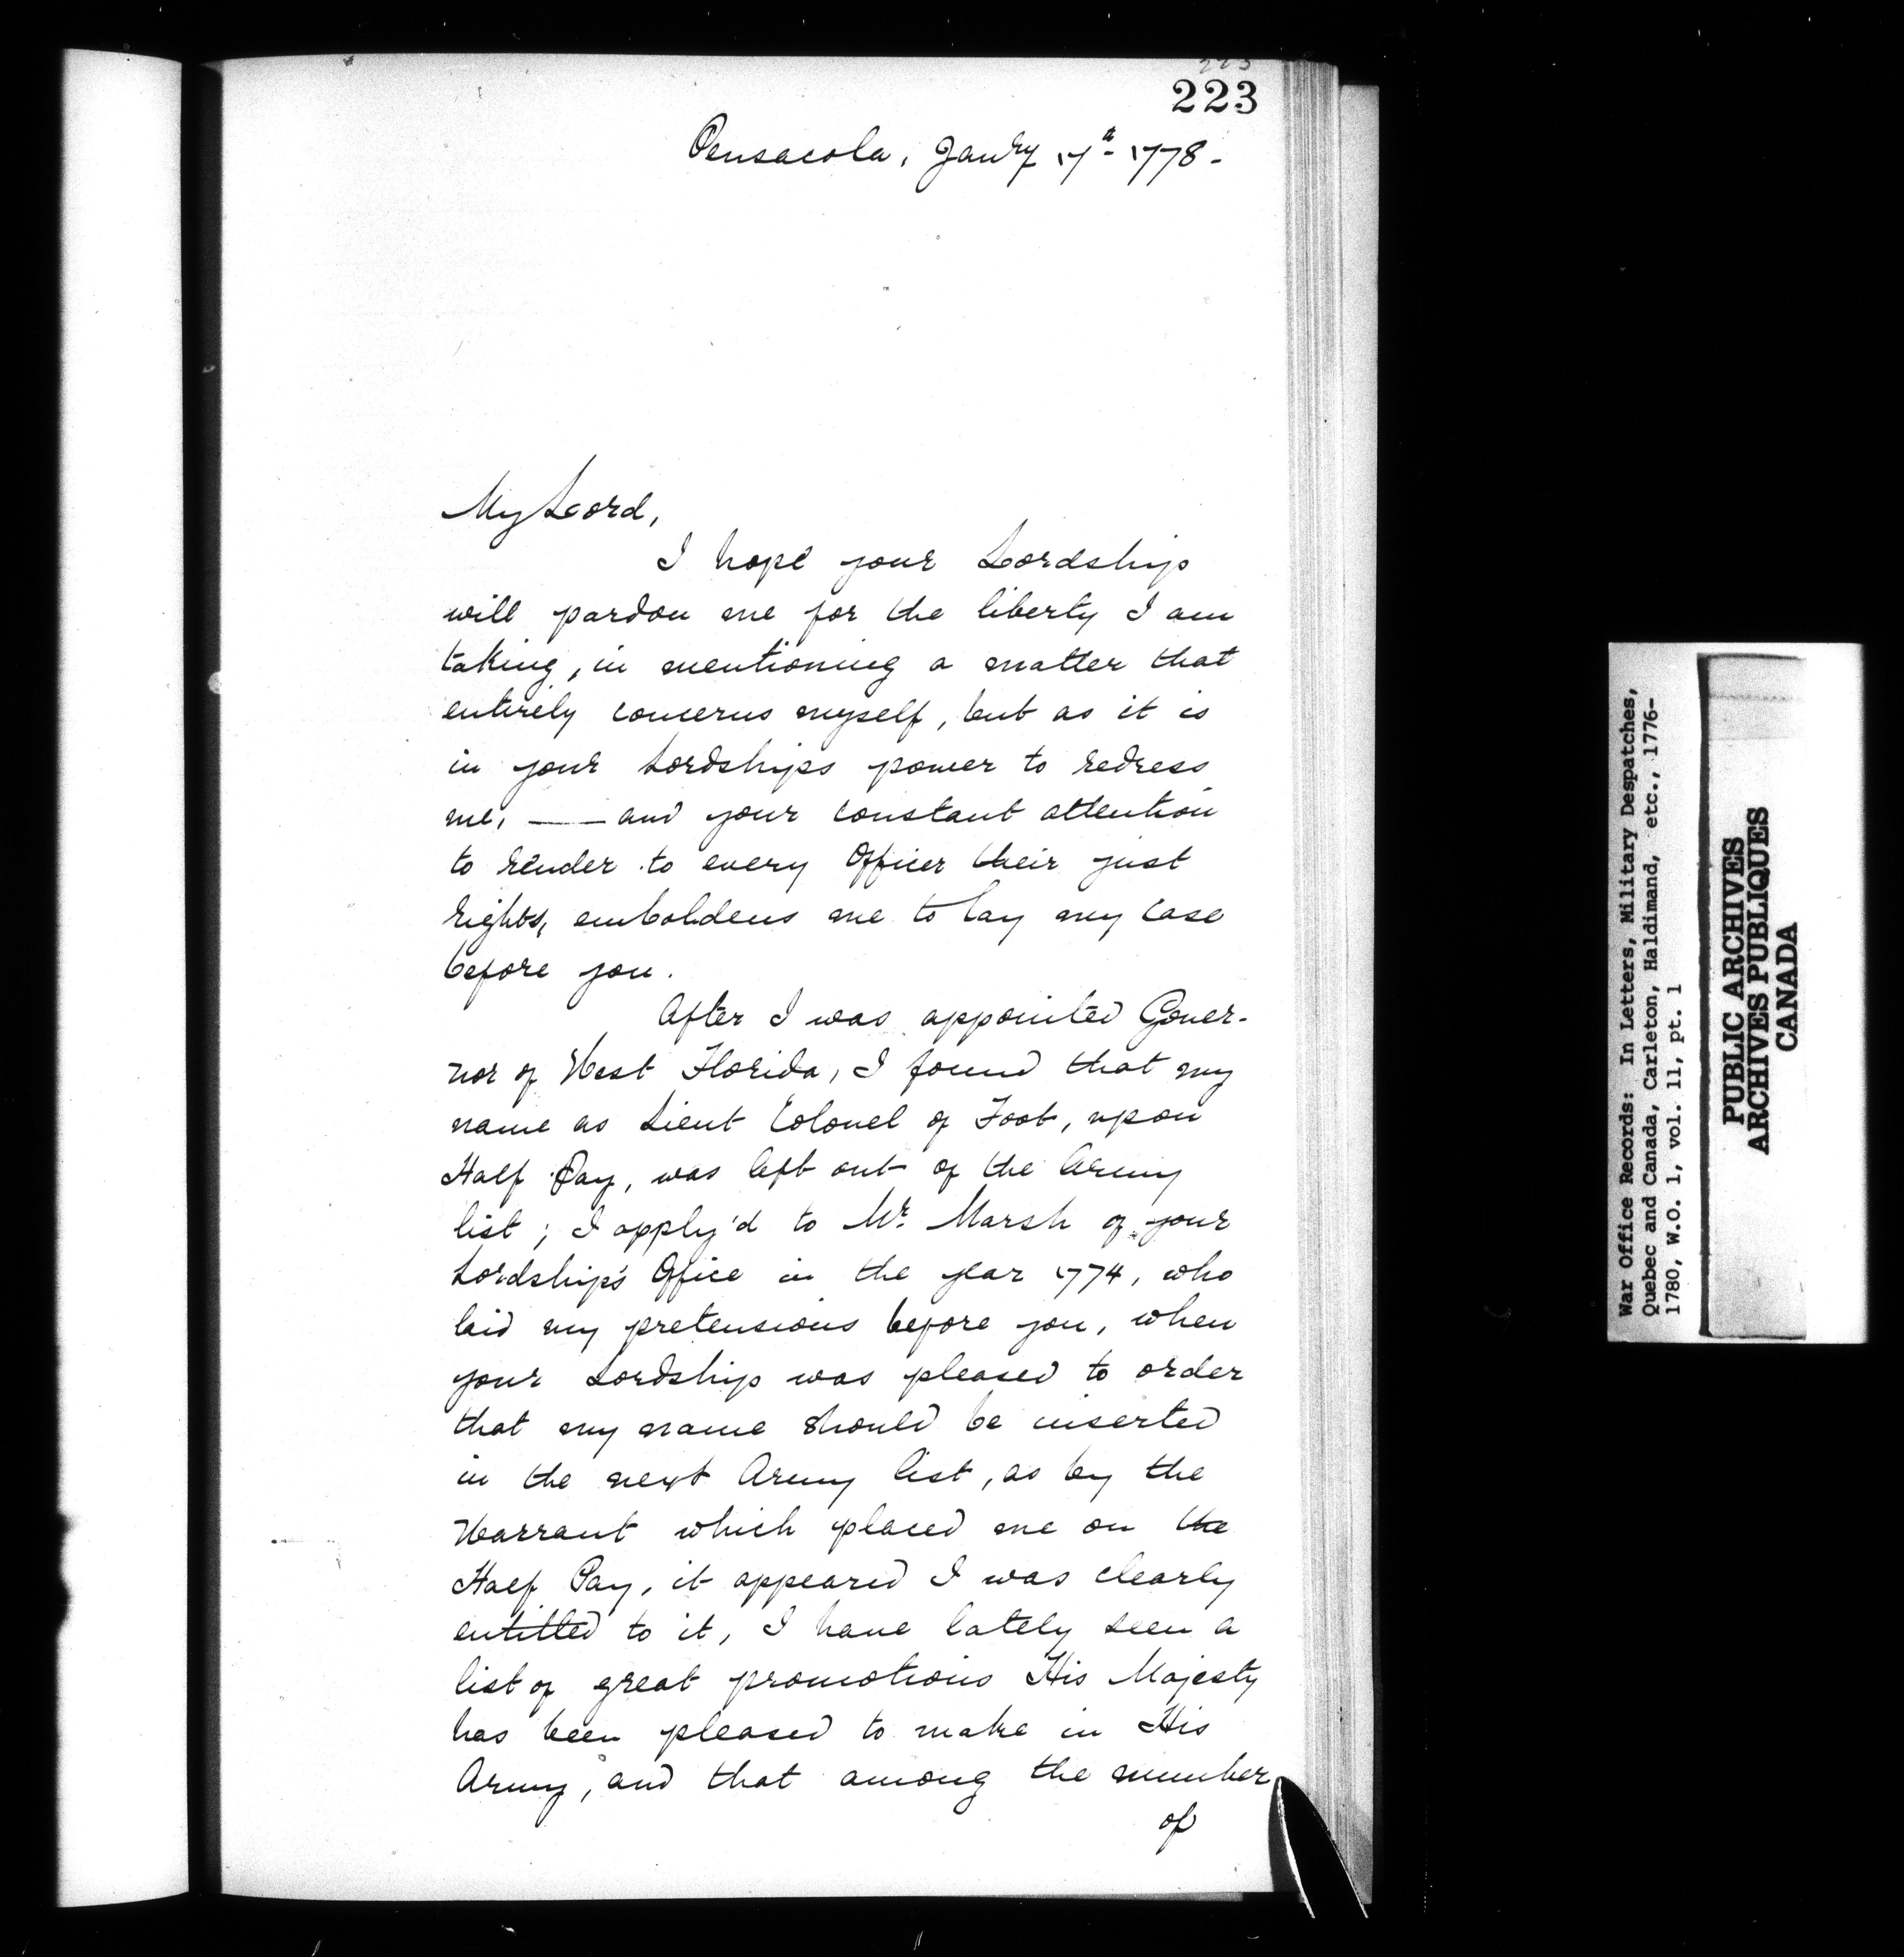 223
223
Pensacola, Janry 17th 1778.
My Lord,
I hope your Lordship
will pardon me for the liberty I am
taking, in mentioning a matter that
entirely concerns myself, but as it is
in your Lordships power to redress
me, —— and your constant attention
to render to every Officer their just
rights, emboldens me to lay my case
before you.
After I was appointed Gover-
nor of West Florida, I found that my
name as Lieut Colonel of Foot, upon
Half Pay, was left out of the Army
list; I apply'd to Mr. Marsh of your
Lordship's Office in the year 1774, who
laid my pretensions before you, when
your Lordship was pleased to order
that my name should be inserted
in the next Army list, as by the
Warrant which placed me on the
Half Pay, it appeared I was clearly
entitled to it, I have lately seen a
list of great promotions His Majesty
has been pleased to make in His
Army, and that among the number
of
War Office Records: In Letters, Military Despatches,
Quebec and Canada, Carleton, Haldimand, etc., 1776-
1780, W.O. 1, vol. 11, pt. 1
PUBLIC ARCHIVES
ARCHIVES PUBLIQUES
CANADA